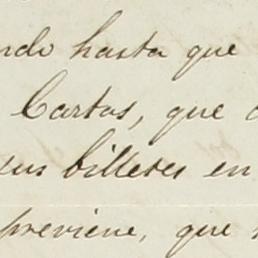 ndo hasta que
Cartas, que
sus billetes en
previene, que